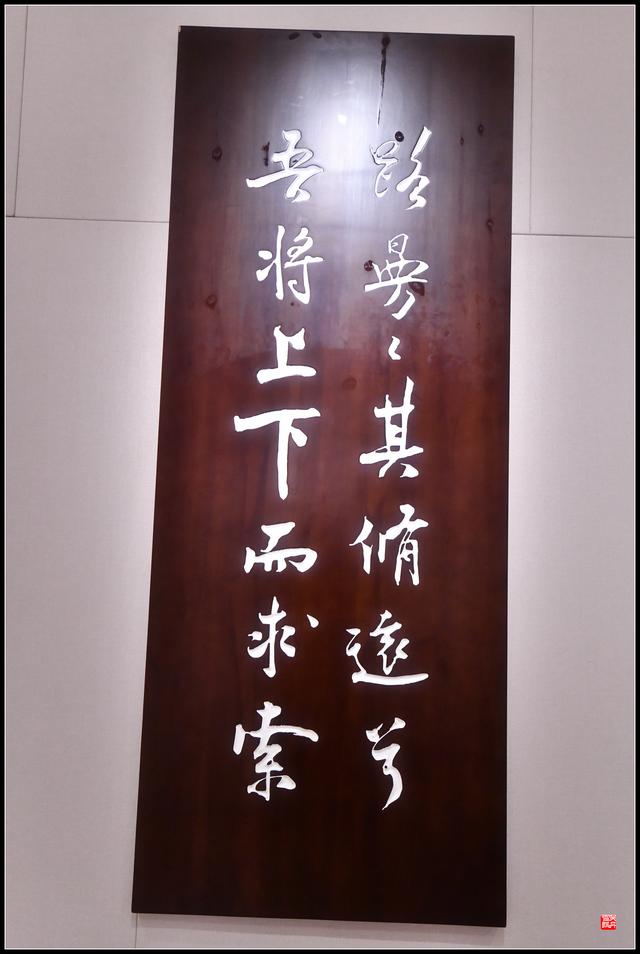 路曼〻其脩遠兮
吾將上下而求索